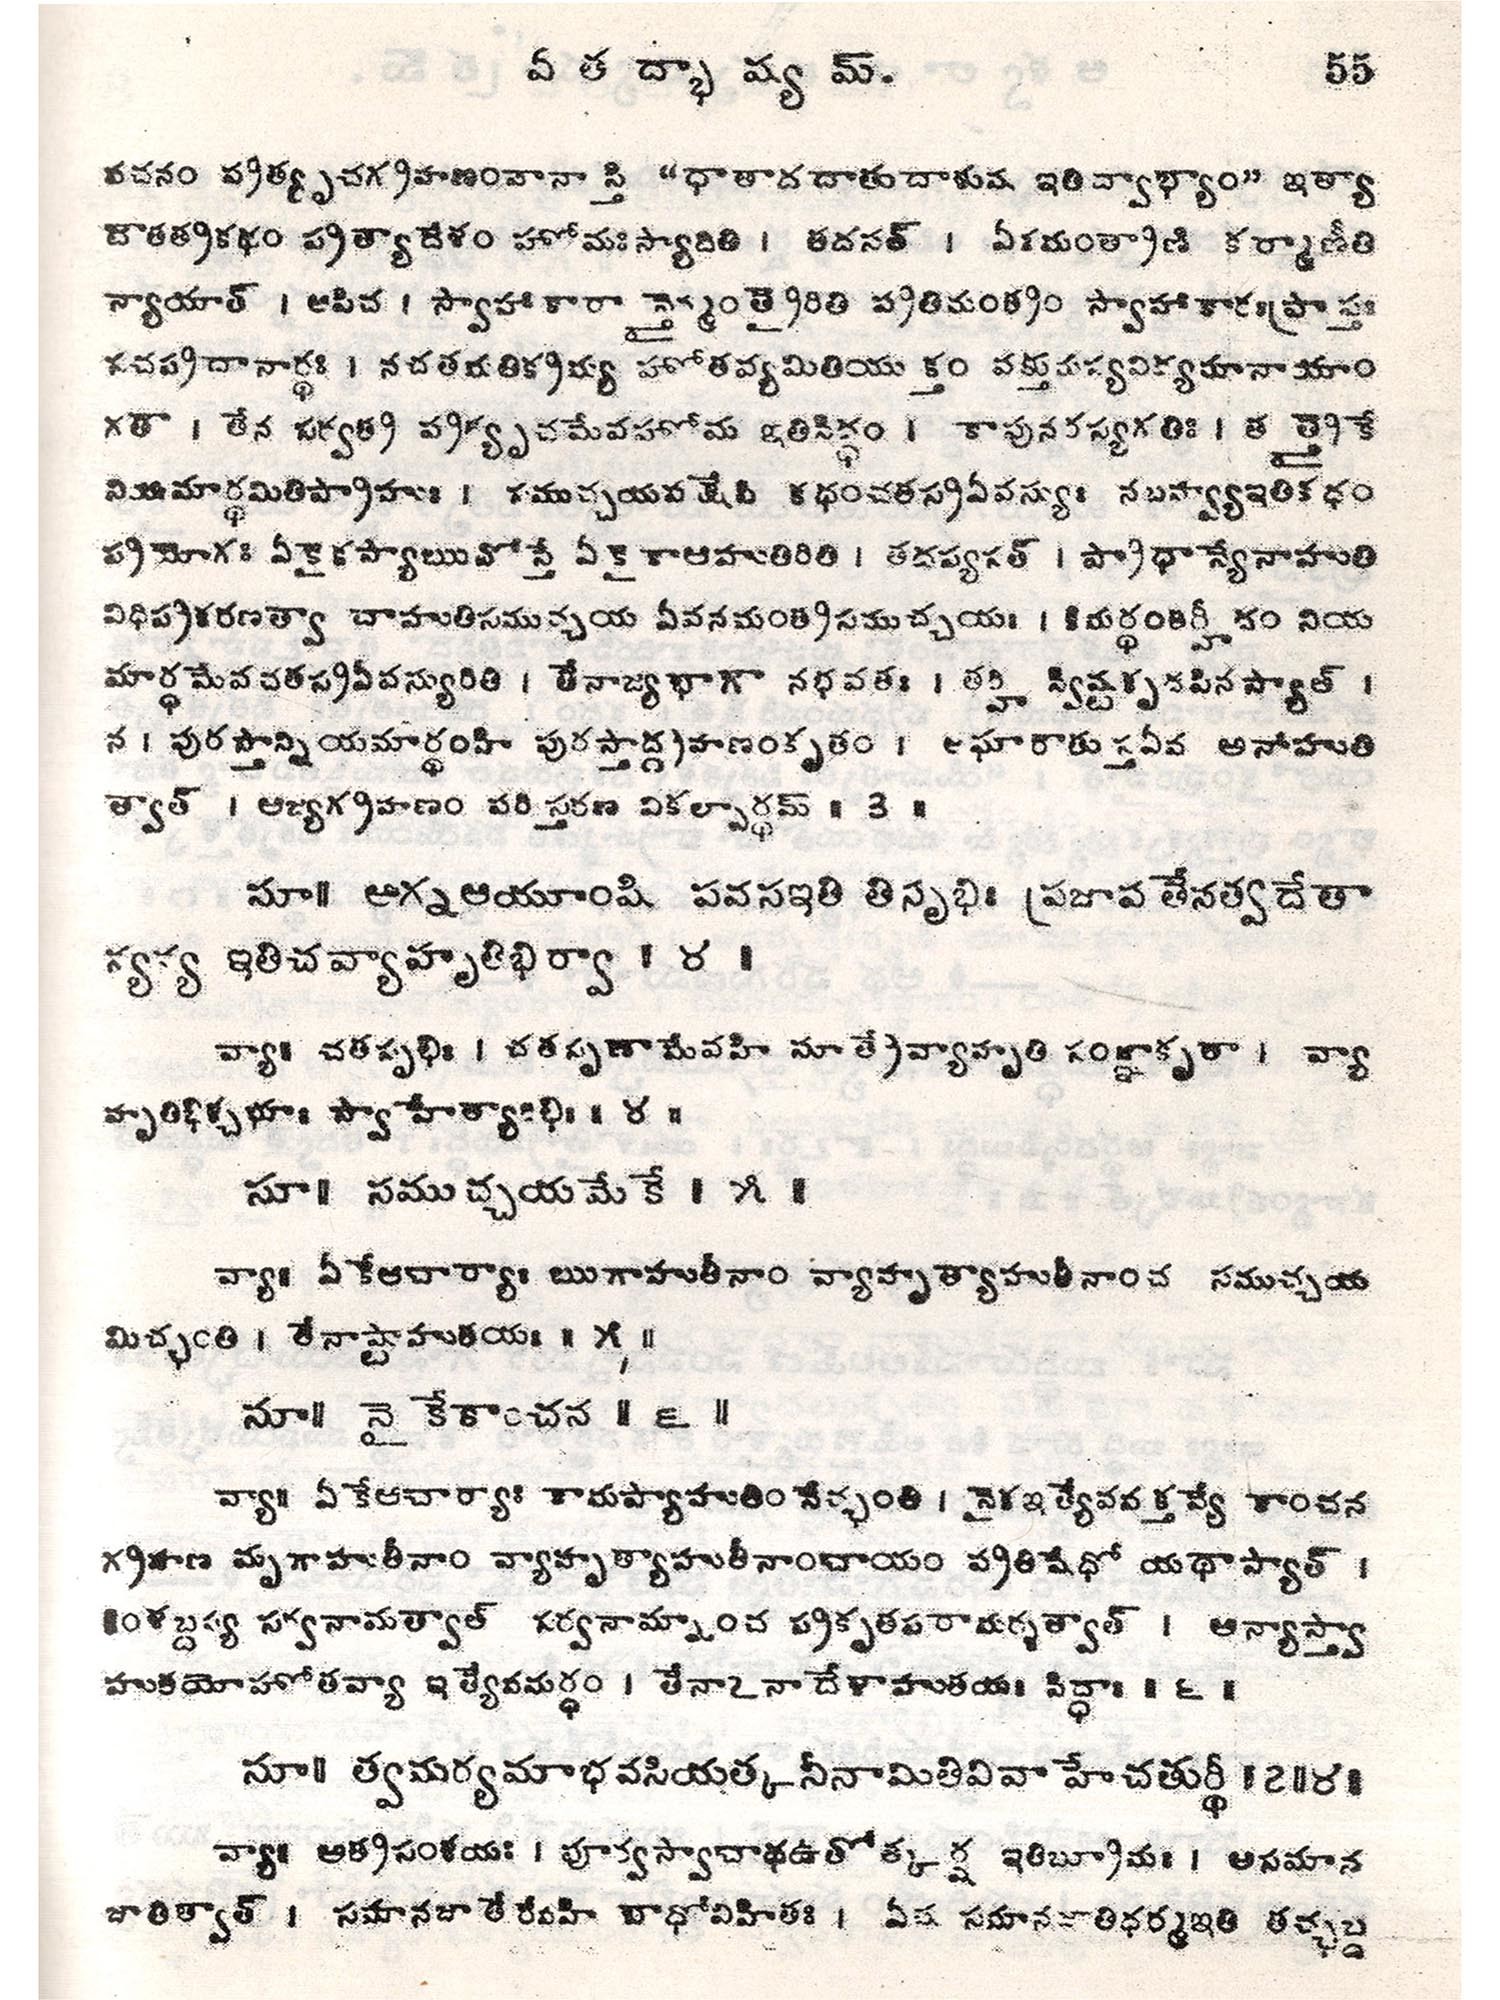 ఏతద్భాష్యమ్. 55
వచనం ప్రత్యృచగ్రహణంవానాస్తి “ధాతాదదాతుదాశుష ఇతిద్వాభ్యాం” ఇత్యా
దాతత్రికథం ప్రత్యాదేశం హోమఃస్యాదితి । తదసత్ । ఏకమంత్రాణి కర్మాణీతి
న్యాయాత్ । అపిచ । స్వాహాకారాన్తైర్మంత్రైరితి ప్రతిమంత్రం స్వాహాకారఃప్రాప్తః
సచప్రదానార్థః । నచతమతిక్రమ్య హోతవ్యమితియుక్తం వక్తుమస్యవిద్యమానాయాం
గతౌ । తేన సర్వత్ర ప్రత్యృచమేవహోమ ఇతిసిద్ధం । కాపునరస్యగతిః । తత్రైకే
నియమార్థమితిప్రాహుః । సముచ్చయపక్షేపి కథంచతస్రఏవస్యుః నబహ్వ్యఇతికథం
ప్రయోగః ఏకైకస్యాఋచోన్తే ఏకైకాఆహుతిరితి । తదప్యసత్ । ప్రాధాన్యేనాహుతి
విధిప్రకరణత్వా చాహుతిసముచ్చయ ఏవనమంత్రసముచ్చయః । కిమర్థంతర్హీదం నియ
మార్థమేవచతస్రఏవస్యురితి । తేనాజ్యభాగౌ నభవతః । తర్హి స్విష్టకృదపినస్యాత్ ।
న । పురస్తాన్నియమార్థంహి పురస్తాద్గ్రహణంకృతం । ఆఘారౌతు స్తఏవ అనాహుతి
త్వాత్ । ఆజ్యగ్రహణం పరిస్తరణ వికల్పార్థమ్ ॥ 3 ॥
సూ॥ ఆగ్నఆయూంషి పవసఇతి తిసృభిః ప్రజాపతేనత్వదేతా
న్యన్య ఇతిచవ్యాహృతిభిర్వా ॥ ౪ ॥
వ్యా॥ చతసృభిః । చతసృణామేవహి సూత్రేవ్యాహృతి సంజ్ఞాకృతా । వ్యా
హృతిభిశ్చభూః స్వాహేత్యాదిభిః ॥ ౪ ॥
సూ॥ సముచ్చయమేకే ॥ ౫ ॥
వ్యా॥ ఏకేఆచార్యాః ఋగాహుతీనాం వ్యాహృత్యాహుతీనాంచ సముచ్చయ
మిచ్ఛంతి । తేనాష్టాహుతయః ॥ ౫ ॥
సూ॥ నైకేకాంచన ॥ ౬ ॥
వ్యా॥ ఏకేఆచార్యాః కామప్యాహుతిం నేచ్ఛంతి । నైకఇత్యేవవక్తవ్యే కాంచన
గ్రహణ మృగాహుతీనాం వ్యాహృత్యాహుతీనాంచాయం ప్రతిషేధో యథాస్యాత్ ।
కింశబ్దస్య సర్వనామత్వాత్ సర్వనామ్నాంచ ప్రకృతపరామర్శత్వాత్ । అన్యాస్త్వా
హుతయోహోతవ్యా ఇత్యేవమర్థం । తేనాఽనాదేశాహుతయః సిద్ధాః ॥ ౬ ॥
సూ॥ త్వమర్యమాభవసియత్కనీనామితివివాహేచతుర్థీ ॥౭॥౪॥
వ్యా॥ అత్రసంశయః । పూర్వస్యాబాధఉతోత్కర్ష ఇతిబ్రూమః । అసమాన
జాతిత్వాత్ । సమానజాతేరేవహి బాధోవిహితః । ఏష సమానజాతిధర్మఇతి తచ్ఛబ్ద